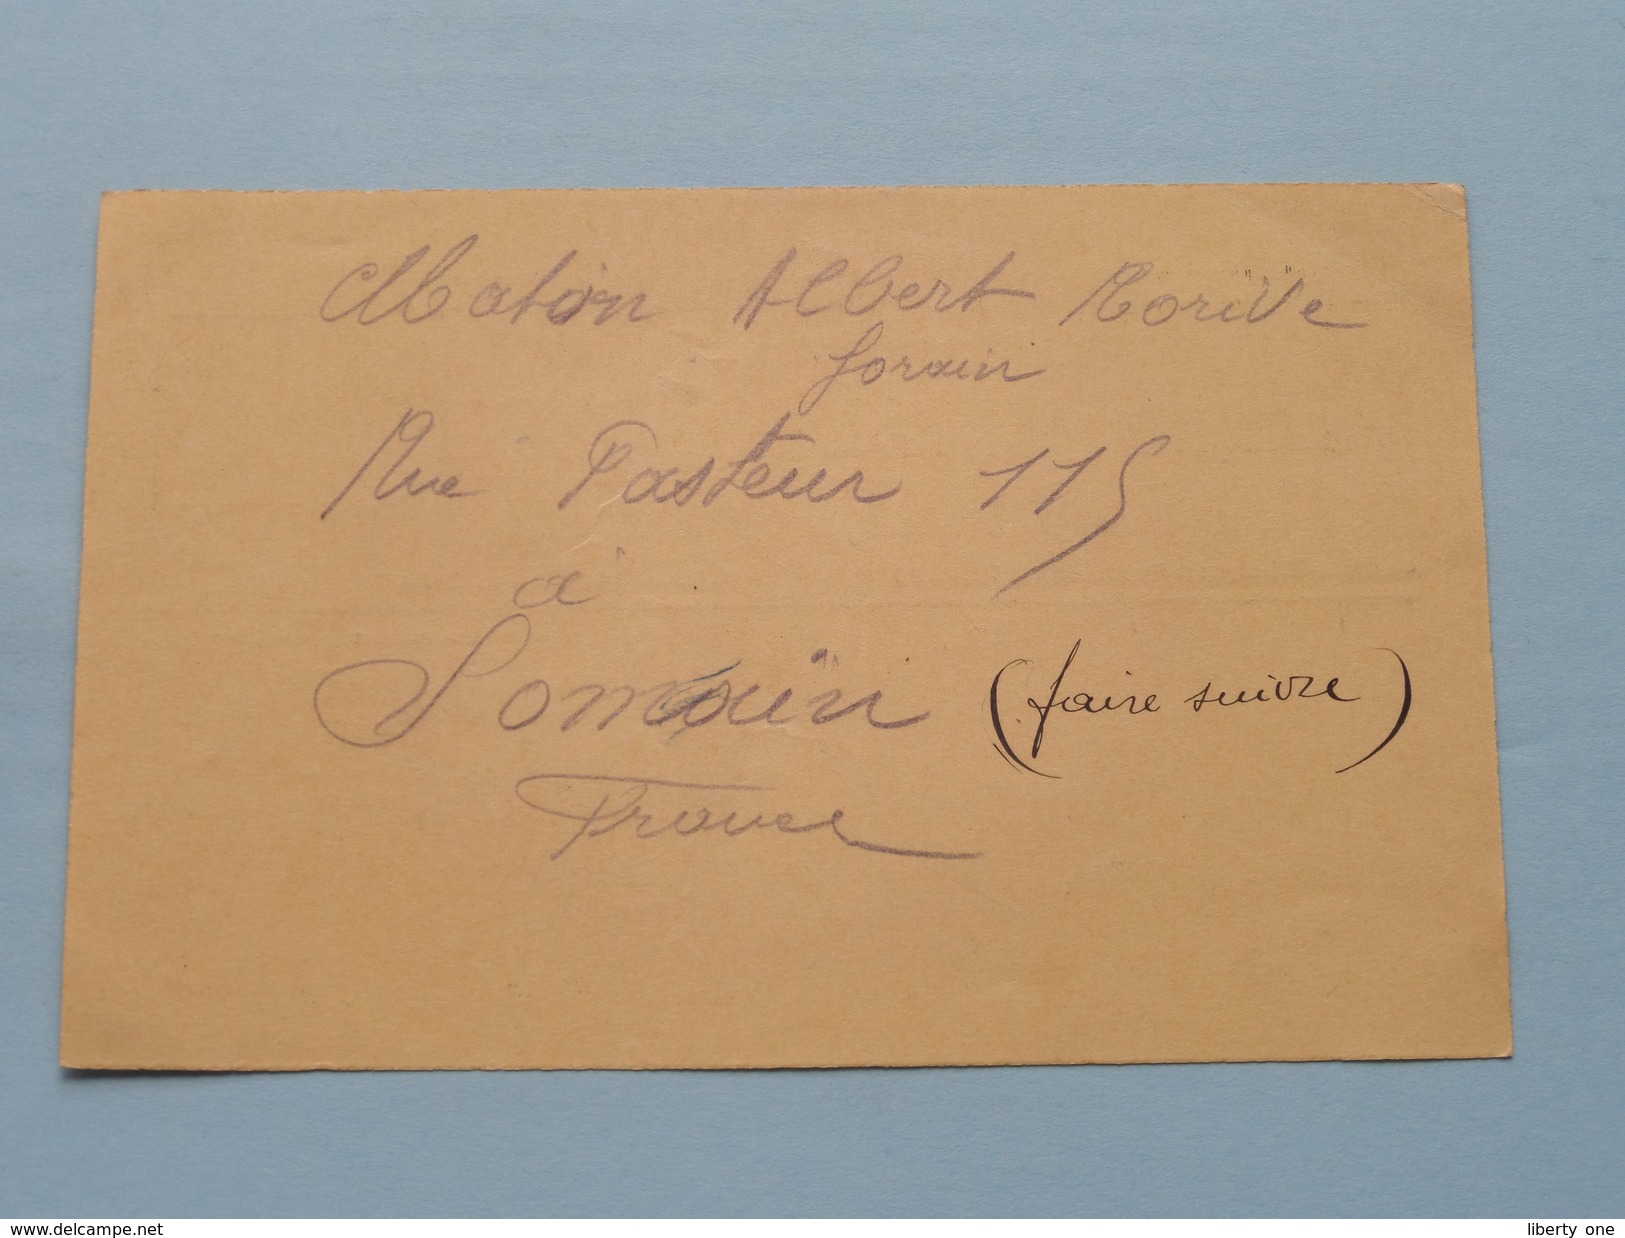 Maton Albert
forain
Rue Pasteur 115
à
Somain (faire suivre)
France
www.delcampe.net
liberty one